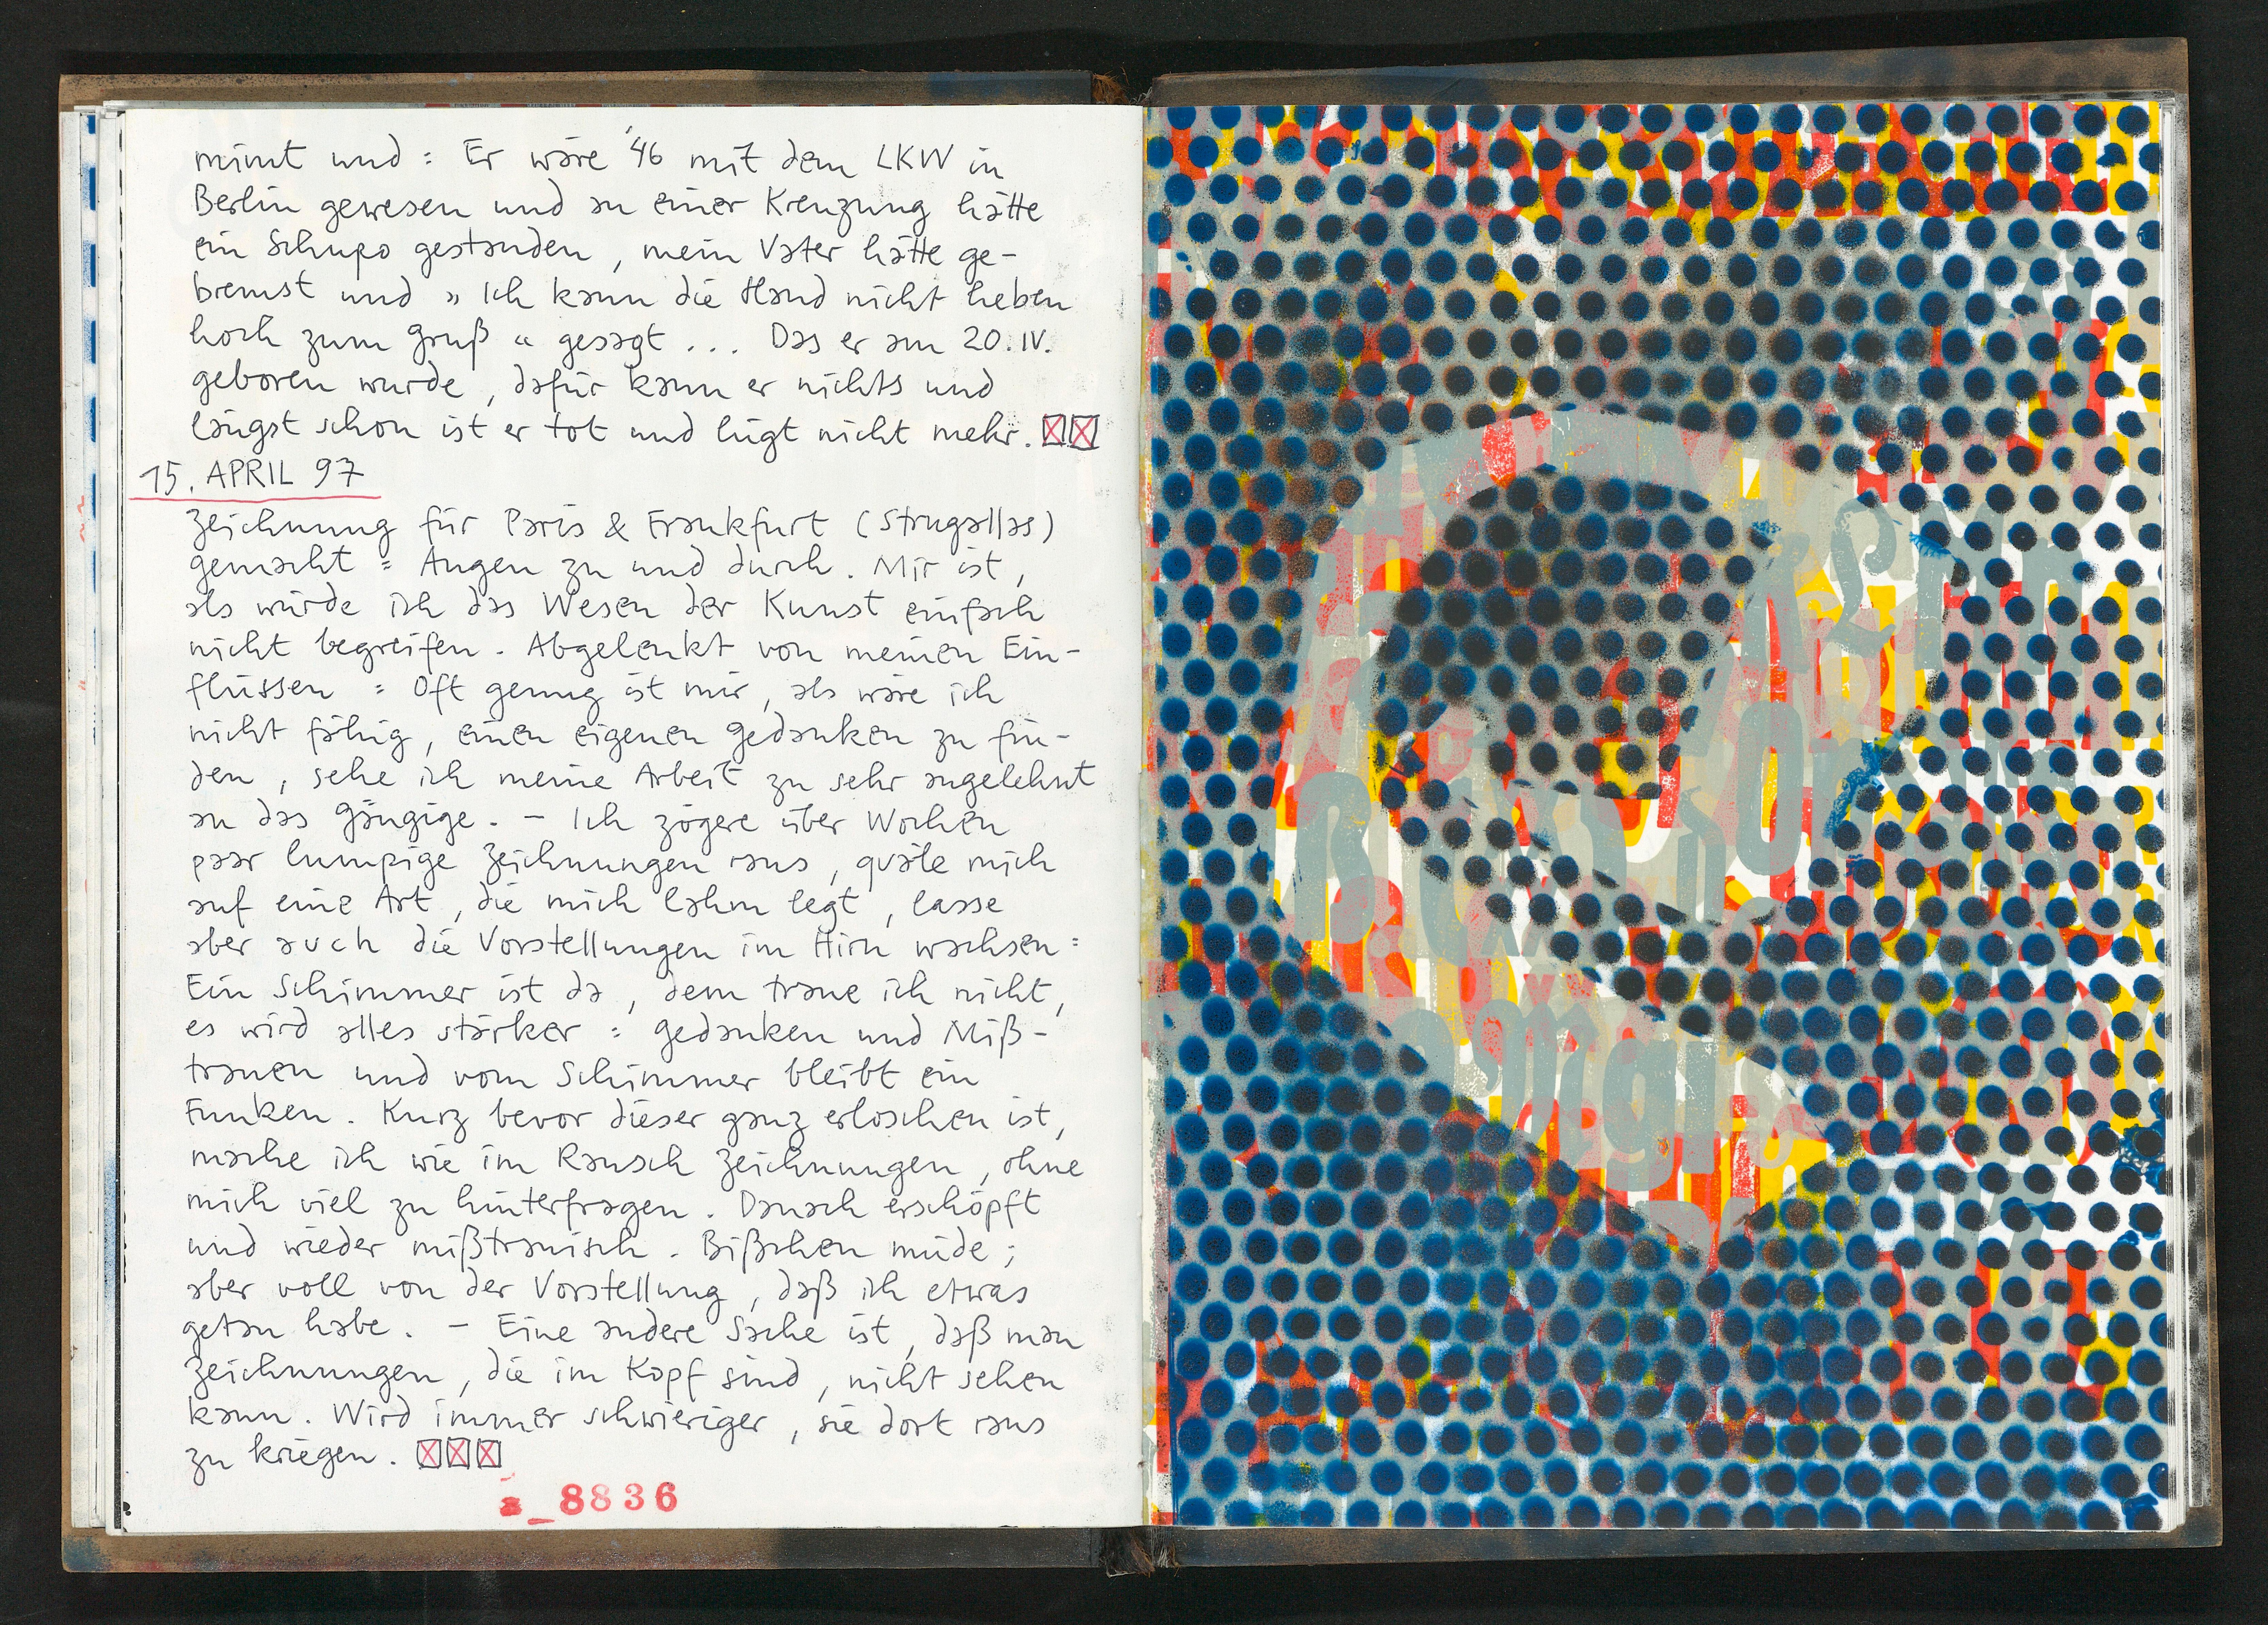 nimmt und : Er wäre '46 mit dem LKW in
Berlin gewesen und an einer Kreuzung hätte
ein Schupo gestanden, mein Vater hätte ge-
bremst und „Ich kann die Hand nicht heben
hoch zum Gruß“ gesagt ... Das er am 20.IV.
geboren wurde, dafür kann er nichts und
längst schon ist er tot und lügt nicht mehr.
15. APRIL 97
Zeichnung für Paris & Frankfurt (Strugallas)
gemacht = Augen zu und durch. Mir ist,
als würde ich das Wesen der Kunst einfach
nicht begreifen. Abgelenkt von meinen Ein-
flüssen = Oft genug ist mir, als wäre ich
nicht fähig, einen eigenen Gedanken zu fin-
den, sehe ich meine Arbeit zu sehr angelehnt
an das Gängige. – Ich zögere über Wochen
paar lumpige Zeichnungen raus, quäle mich
auf eine Art, die mich lahm legt, lasse
aber auch die Vorstellungen im Hirn wachsen =
Ein Schimmer ist da, dem traue ich nicht,
es wird alles stärker = Gedanken und Miß-
trauen und vom Schimmer bleibt ein
Funken. Kurz bevor dieser ganz erloschen ist,
mache ich wie im Rausch Zeichnungen, ohne
mich viel zu hinterfragen. Danach erschöpft
und wieder mißtrauisch. Bißchen müde;
aber voll von der Vorstellung, daß ich etwas
getan habe. – Eine andere Sache ist, daß man
Zeichnungen, die im Kopf sind, nicht sehen
kann. Wird immer schwieriger, sie dort raus
zu kriegen.
8836